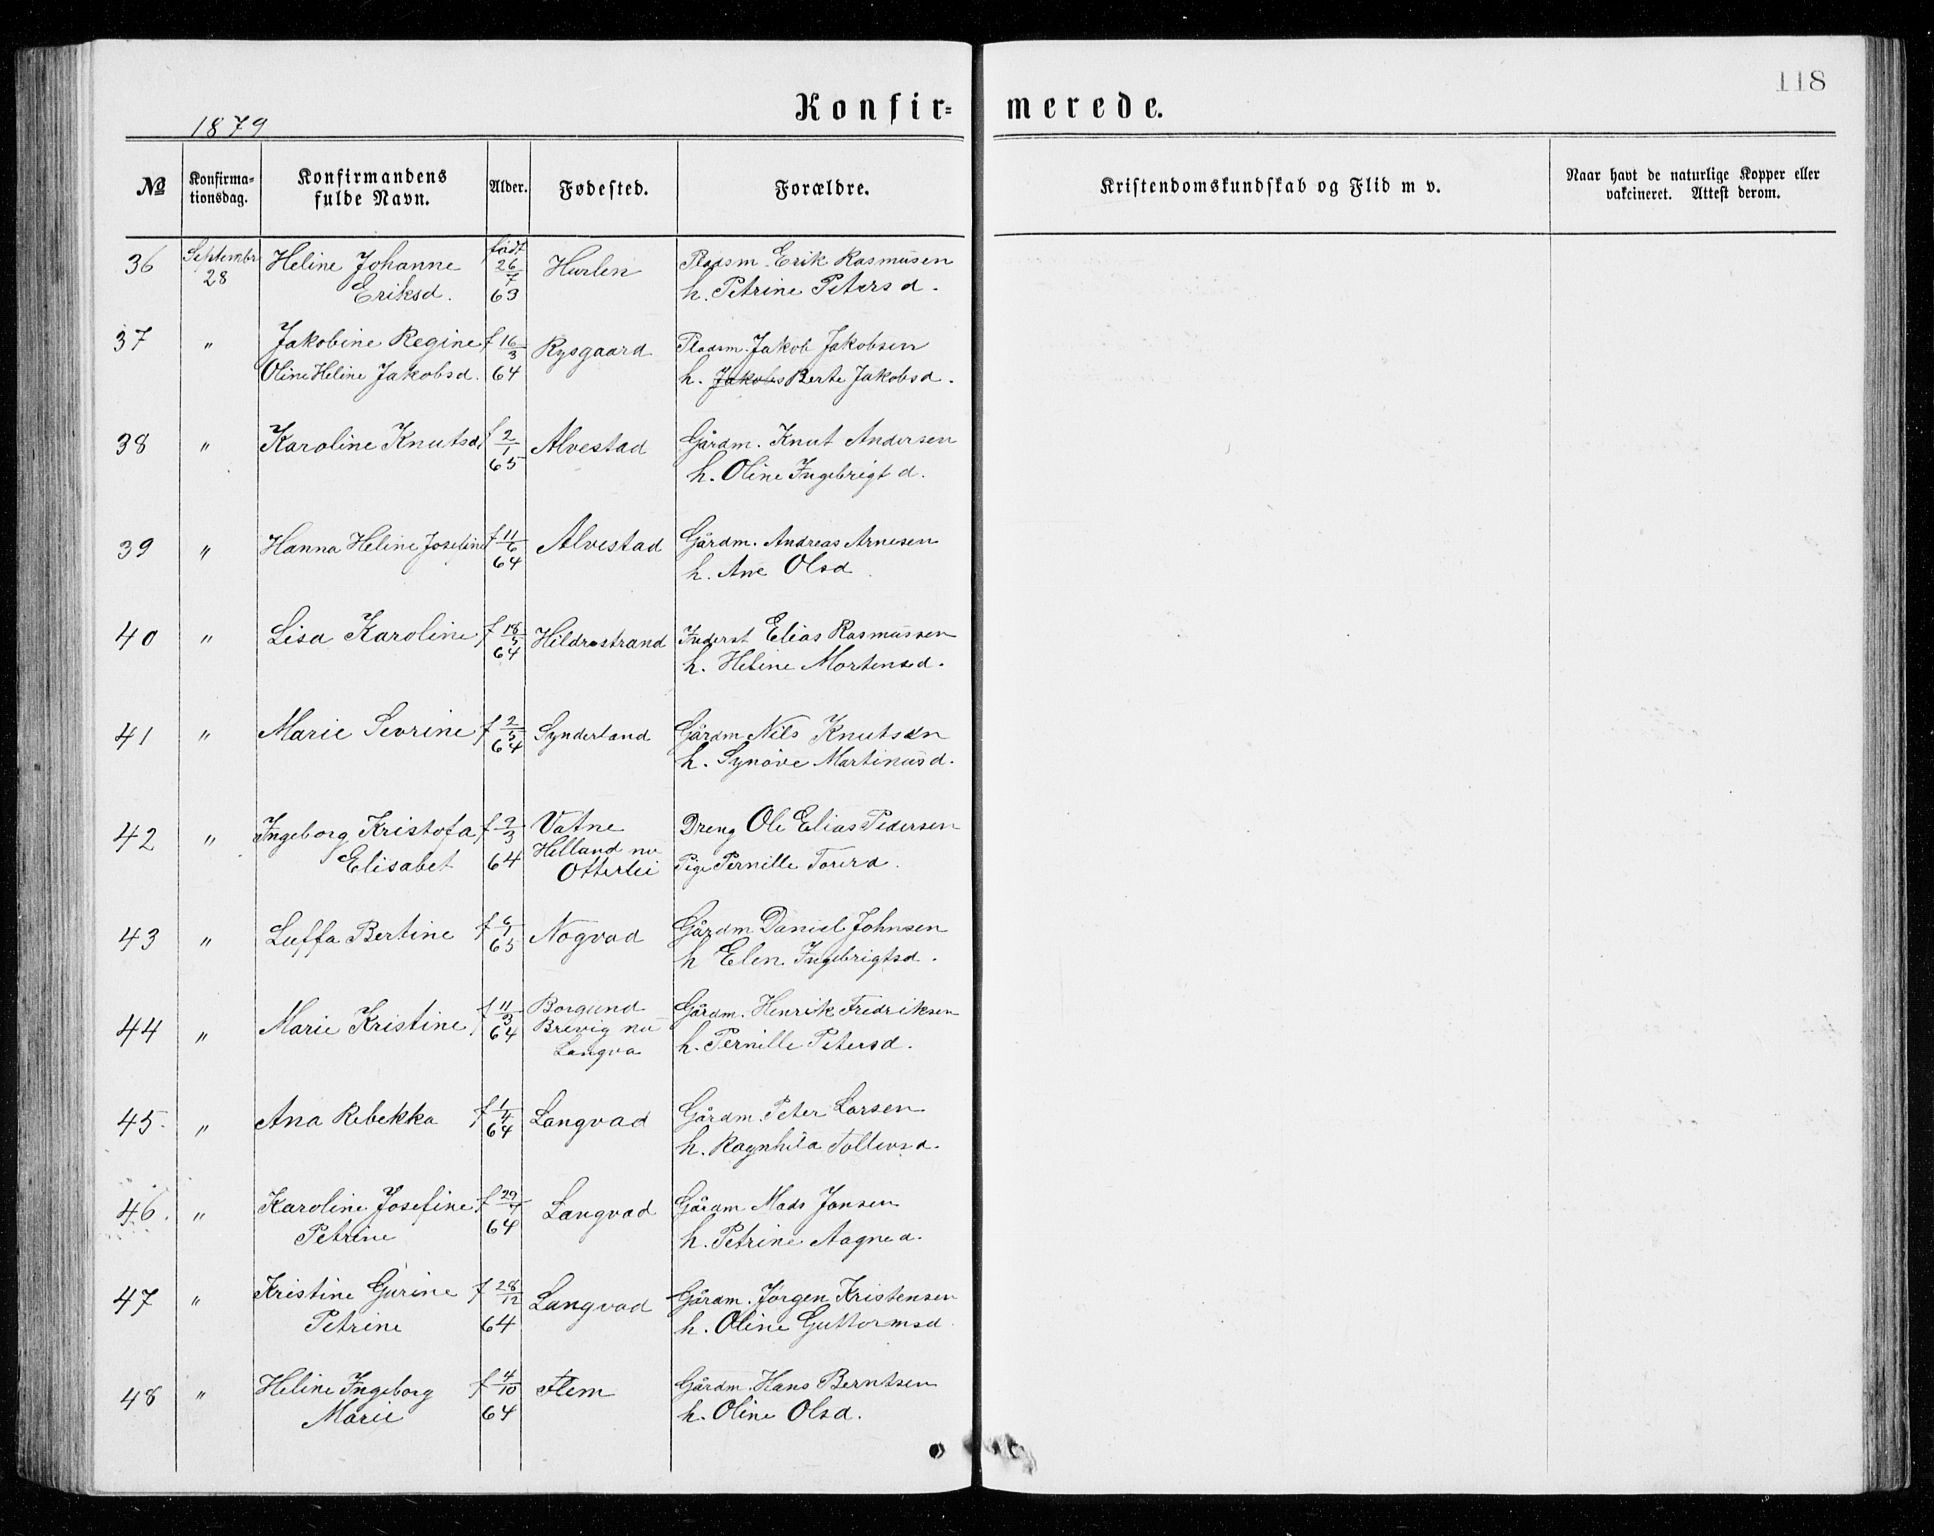 118
Konfir= merede.
1879
№ Konfirma= tionsdag. Konfirmandens fulde Navn. Alder. Fødested. Forældre. Kristendomskundskab og Flid m v. Naar havt de naturlige Kopper eller vakcineret. Attest derom.
36 Septembr Heline Johanne født 26/7 Hurlen Pladsm. Erik Rasmusen
28 Eriksd. 63 h. Petrine Petersd.
37 " Jakobine Regine f 16/3 Rysgaard Pladsm. Jakob Jakobsen
Oline Heline Jakobsd. 64 h. Jakobs Berte Jakobsd.
38 " Karoline Knutsd. f 2/1 Alvestad Gårdm. Knut Andersen
65 h. Oline Ingebrigtd.
39 " Hanna Heline Josefine f 11/6 Alvestad Gårdm. Andreas Arnesen
64 h. Ane Olsd
40 " Lisa Karoline f 18/5 Hildrestrand Inderst Elias Rasmussen
64 h. Heline Mortensd.
41 " Marie Sevrine f 2/5 Synderland Gårdm Nils Knutsen
64 h. Synöve Martinusd.
42 " Ingeborg Kristofa f 2/3 Vatne Dreng Ole Elias Pedersen
Elisabet 64 Helland nu Otterlei Pige Pernille Torerd.
43 " Luffa Bertine f 6/1 Nogvad Gårdm Daniel Johnsen
65 h Elen Ingebrigtsd.
44 " Marie Kristine f 11/3 Borgund Gårdm. Henrik Fredriksen
64 Brevig nu Langva h. Pernille Petersd.
45. " Ana Rebekka f 1/4 Langvad Gårdm. Peter Larsen
64 h. Ragnhild Tollevsd.
46. " Karoline Josefine f 29/7 Langvad Gårdm Mads Jansen
Petrine 64 h. Petrine Aagned.
47 " Kristine Gurine f 28/12 Langvad Gårdm. Jörgen Kristensen
Petrine 64 h. Oline Guttormsd.
48 " Heline Ingeborg f 4/10 Flem Gårdm. Hans Berntsen
Marie 64 h. Oline Olsd.